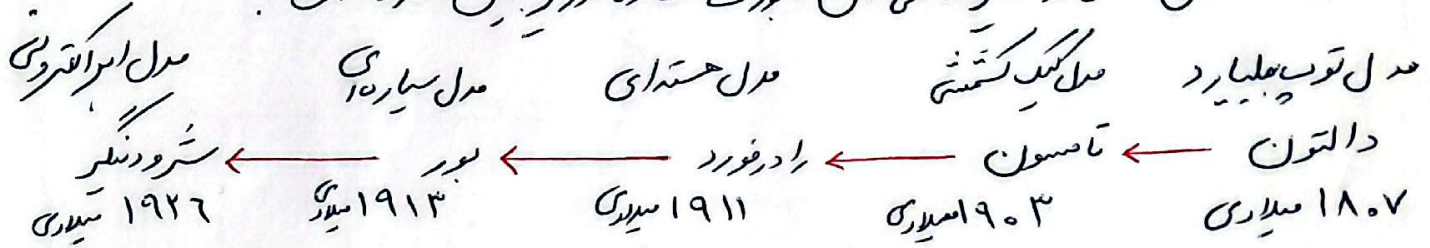 مدل توپ بیلیارد مدل کیک کشمشی مدل هسته‌ای مدل سیاره‌ای مدل ابر الکترونی
دالتون ← تامسون ← رادرفورد ← بور ← شرودینگر
۱۸۰۷ میلادی ۱۹۰۳ میلادی ۱۹۱۱ میلادی ۱۹۱۳ میلادی ۱۹۲۶ میلادی